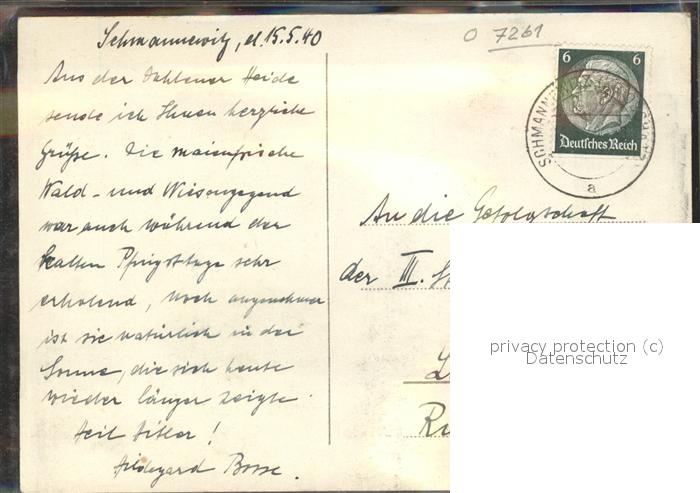 Schmannewitz, d. 15.5.40
O 7261
Aus der Dahlener Heide
sende ich Ihnen herzliche
Grüße. Die maienfrische
Wald- und Wiesengegend
war auch während der
kalten Pfingsttage sehr
erholend, noch angenehmer
ist sie natürlich in der
Sonne, die sich heute
wieder länger zeigte.
Heil Hitler!
Hildegard Bosse.
6 6
Deutsches Reich
SCHMANN
a
An die Gefolgschaft
der III.
privacy protection (c)
Datenschutz